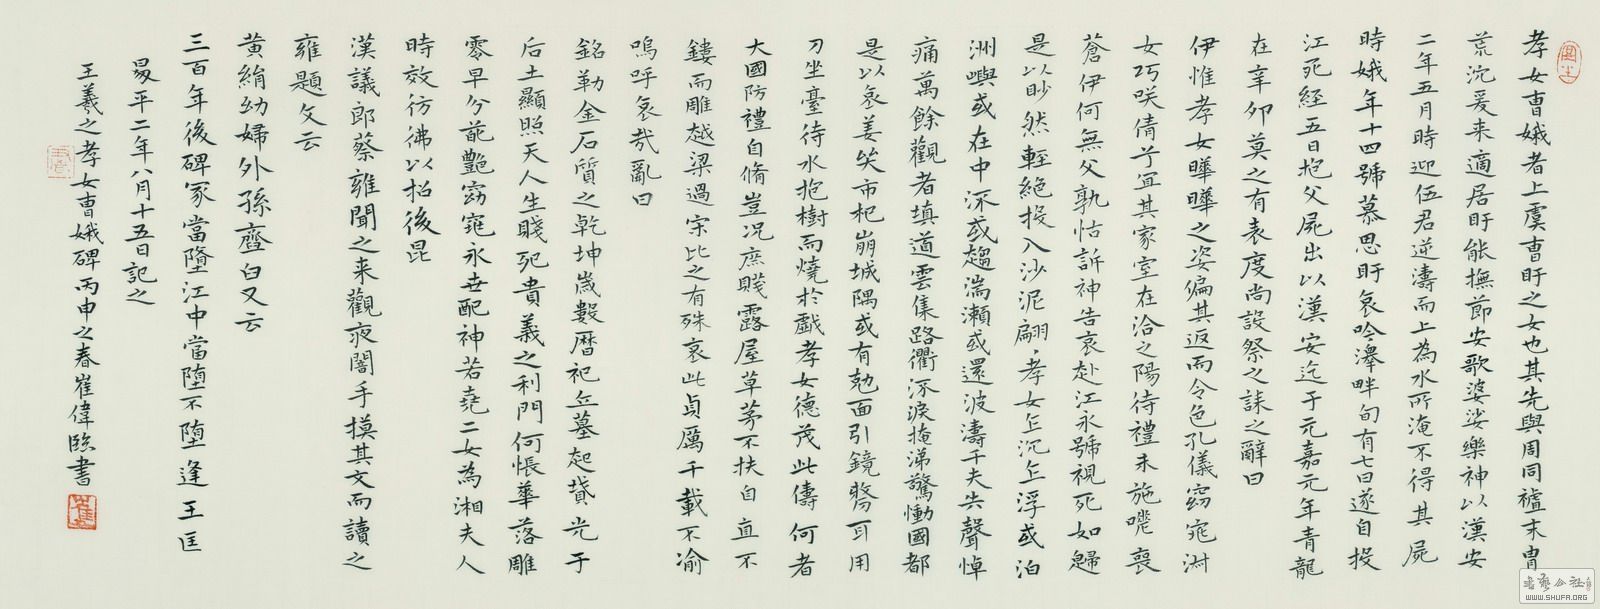 孝女曹娥者上虞曹盱之女也其先與周同祖末胄
荒沉爰来適居盱能撫節安歌婆娑樂神以漢安
二年五月時迎伍君逆濤而上為水所淹不得其屍
時娥年十四號慕思盱哀吟澤畔旬有七日遂自投
江死經五日抱父屍出以漢安迄于元嘉元年青龍
在辛卯莫之有表度尚設祭之誄之辭曰
伊惟孝女曄曄之姿偏其返而令色孔儀窈窕淑
女巧咲倩兮宜其家室在洽之陽待禮未施嗟喪
蒼伊何無父孰怙訴神告哀赴江永號視死如歸
是以眇然輕絶投入沙泥翩翩孝女乍沉乍浮或泊
洲嶼或在中流或趨湍瀬或還波濤千夫失聲悼
痛萬餘觀者填道雲集路衢流淚掩涕驚慟國都
是以哀姜哭市杞崩城隅或有剋面引鏡剺耳用
刀坐臺待水抱樹而燒於戲孝女德茂此儔何者
大國防禮自脩豈况庶賤露屋草茅不扶自直不
鏤而雕越梁過宋比之有殊哀此貞厲千載不渝
嗚呼哀哉亂曰
銘勒金石質之乾坤歲數曆祀丘墓起墳光于
后土顯照天人生賤死貴義之利門何悵華落雕
零早分葩艶窈窕永世配神若堯二女為湘夫人
時效彷彿以招後昆
漢議郎蔡雍聞之来觀夜闇手摸其文而讀之
雍題文云
黄絹幼婦外孫齏臼又云
三百年後碑冢當墮江中當墮不墮逢王叵
昇平二年八月十五日記之
王羲之孝女曹娥碑丙申之春崔偉臨書
書藝公社
WWW.SHUFA.ORG